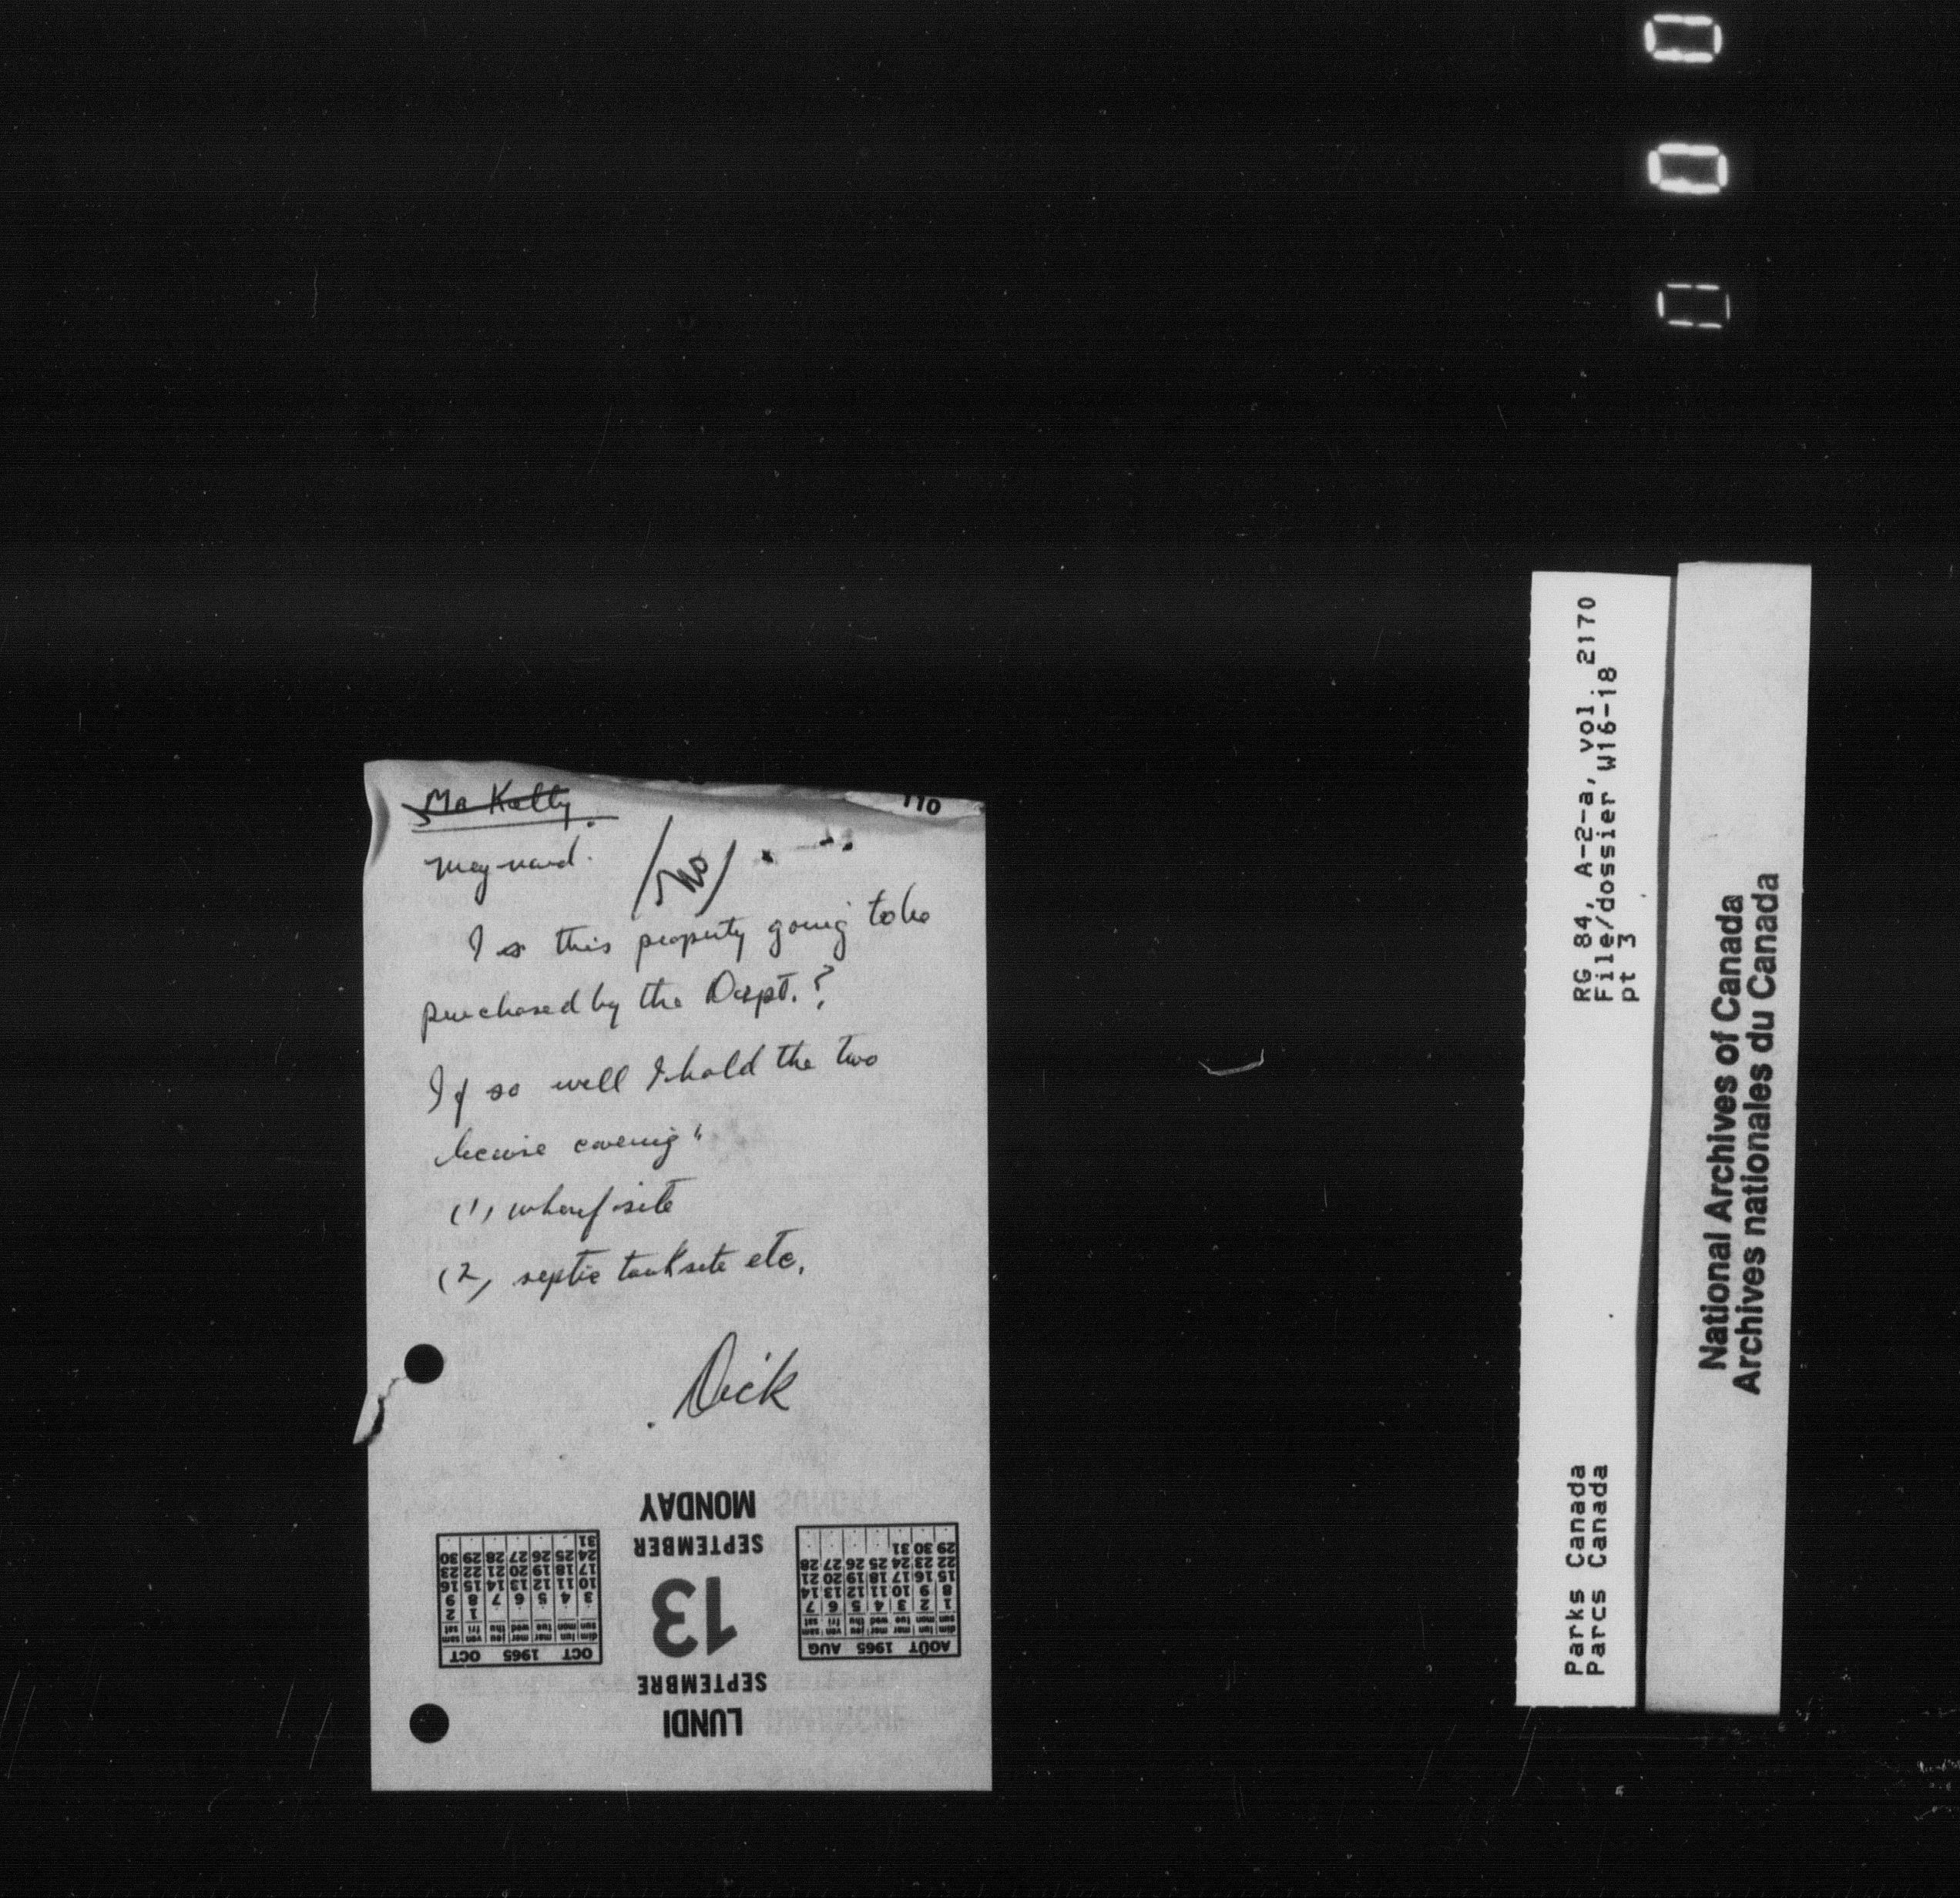 Mr Kelly.
Maynard.
/No/
110
Is this property going to be
purchased by the Dept.?
If so will I hold the two
license covering"
(1) wharf site
(2) septic tank site etc.
Dick
MONDAY
SEPTEMBER
13
SEPTEMBRE
LUNDI
AOÛT 1965 AUG
dim lun mar mer jeu ven sam
sun mon tue wed thu fri sat
1 2 3 4 5 6 7
8 9 10 11 12 13 14
15 16 17 18 19 20 21
22 23 24 25 26 27 28
29 30 31
OCT 1965 OCT
dim lun mar mer jeu ven sam
sun mon tue wed thu fri sat
1 2
3 4 5 6 7 8 9
10 11 12 13 14 15 16
17 18 19 20 21 22 23
24 25 26 27 28 29 30
31
RG 84, A-2-a, vol. 2170
File/dossier W16-18
pt 3
Parks Canada
Parcs Canada
National Archives of Canada
Archives nationales du Canada
000